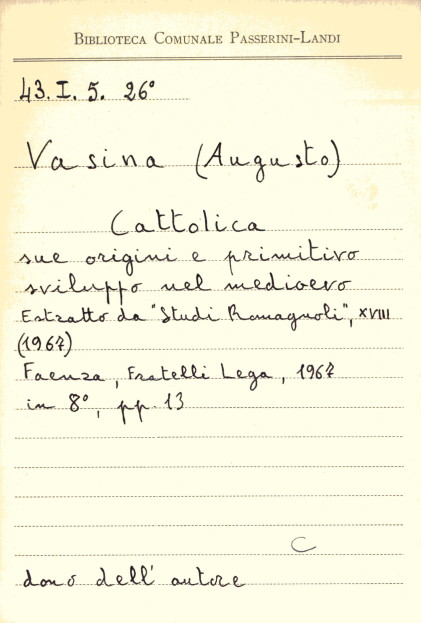 BIBLIOTECA COMUNALE PASSERINI-LANDI
43. I. 5. 26°
Vasina (Augusto)
Cattolica
sue origini e primitivo
sviluppo nel medioevo
Estratto da "Studi Romagnoli", XVIII
(1967)
Faenza, Fratelli Lega, 1967
in 8°, pp. 13
C
dono dell' autore